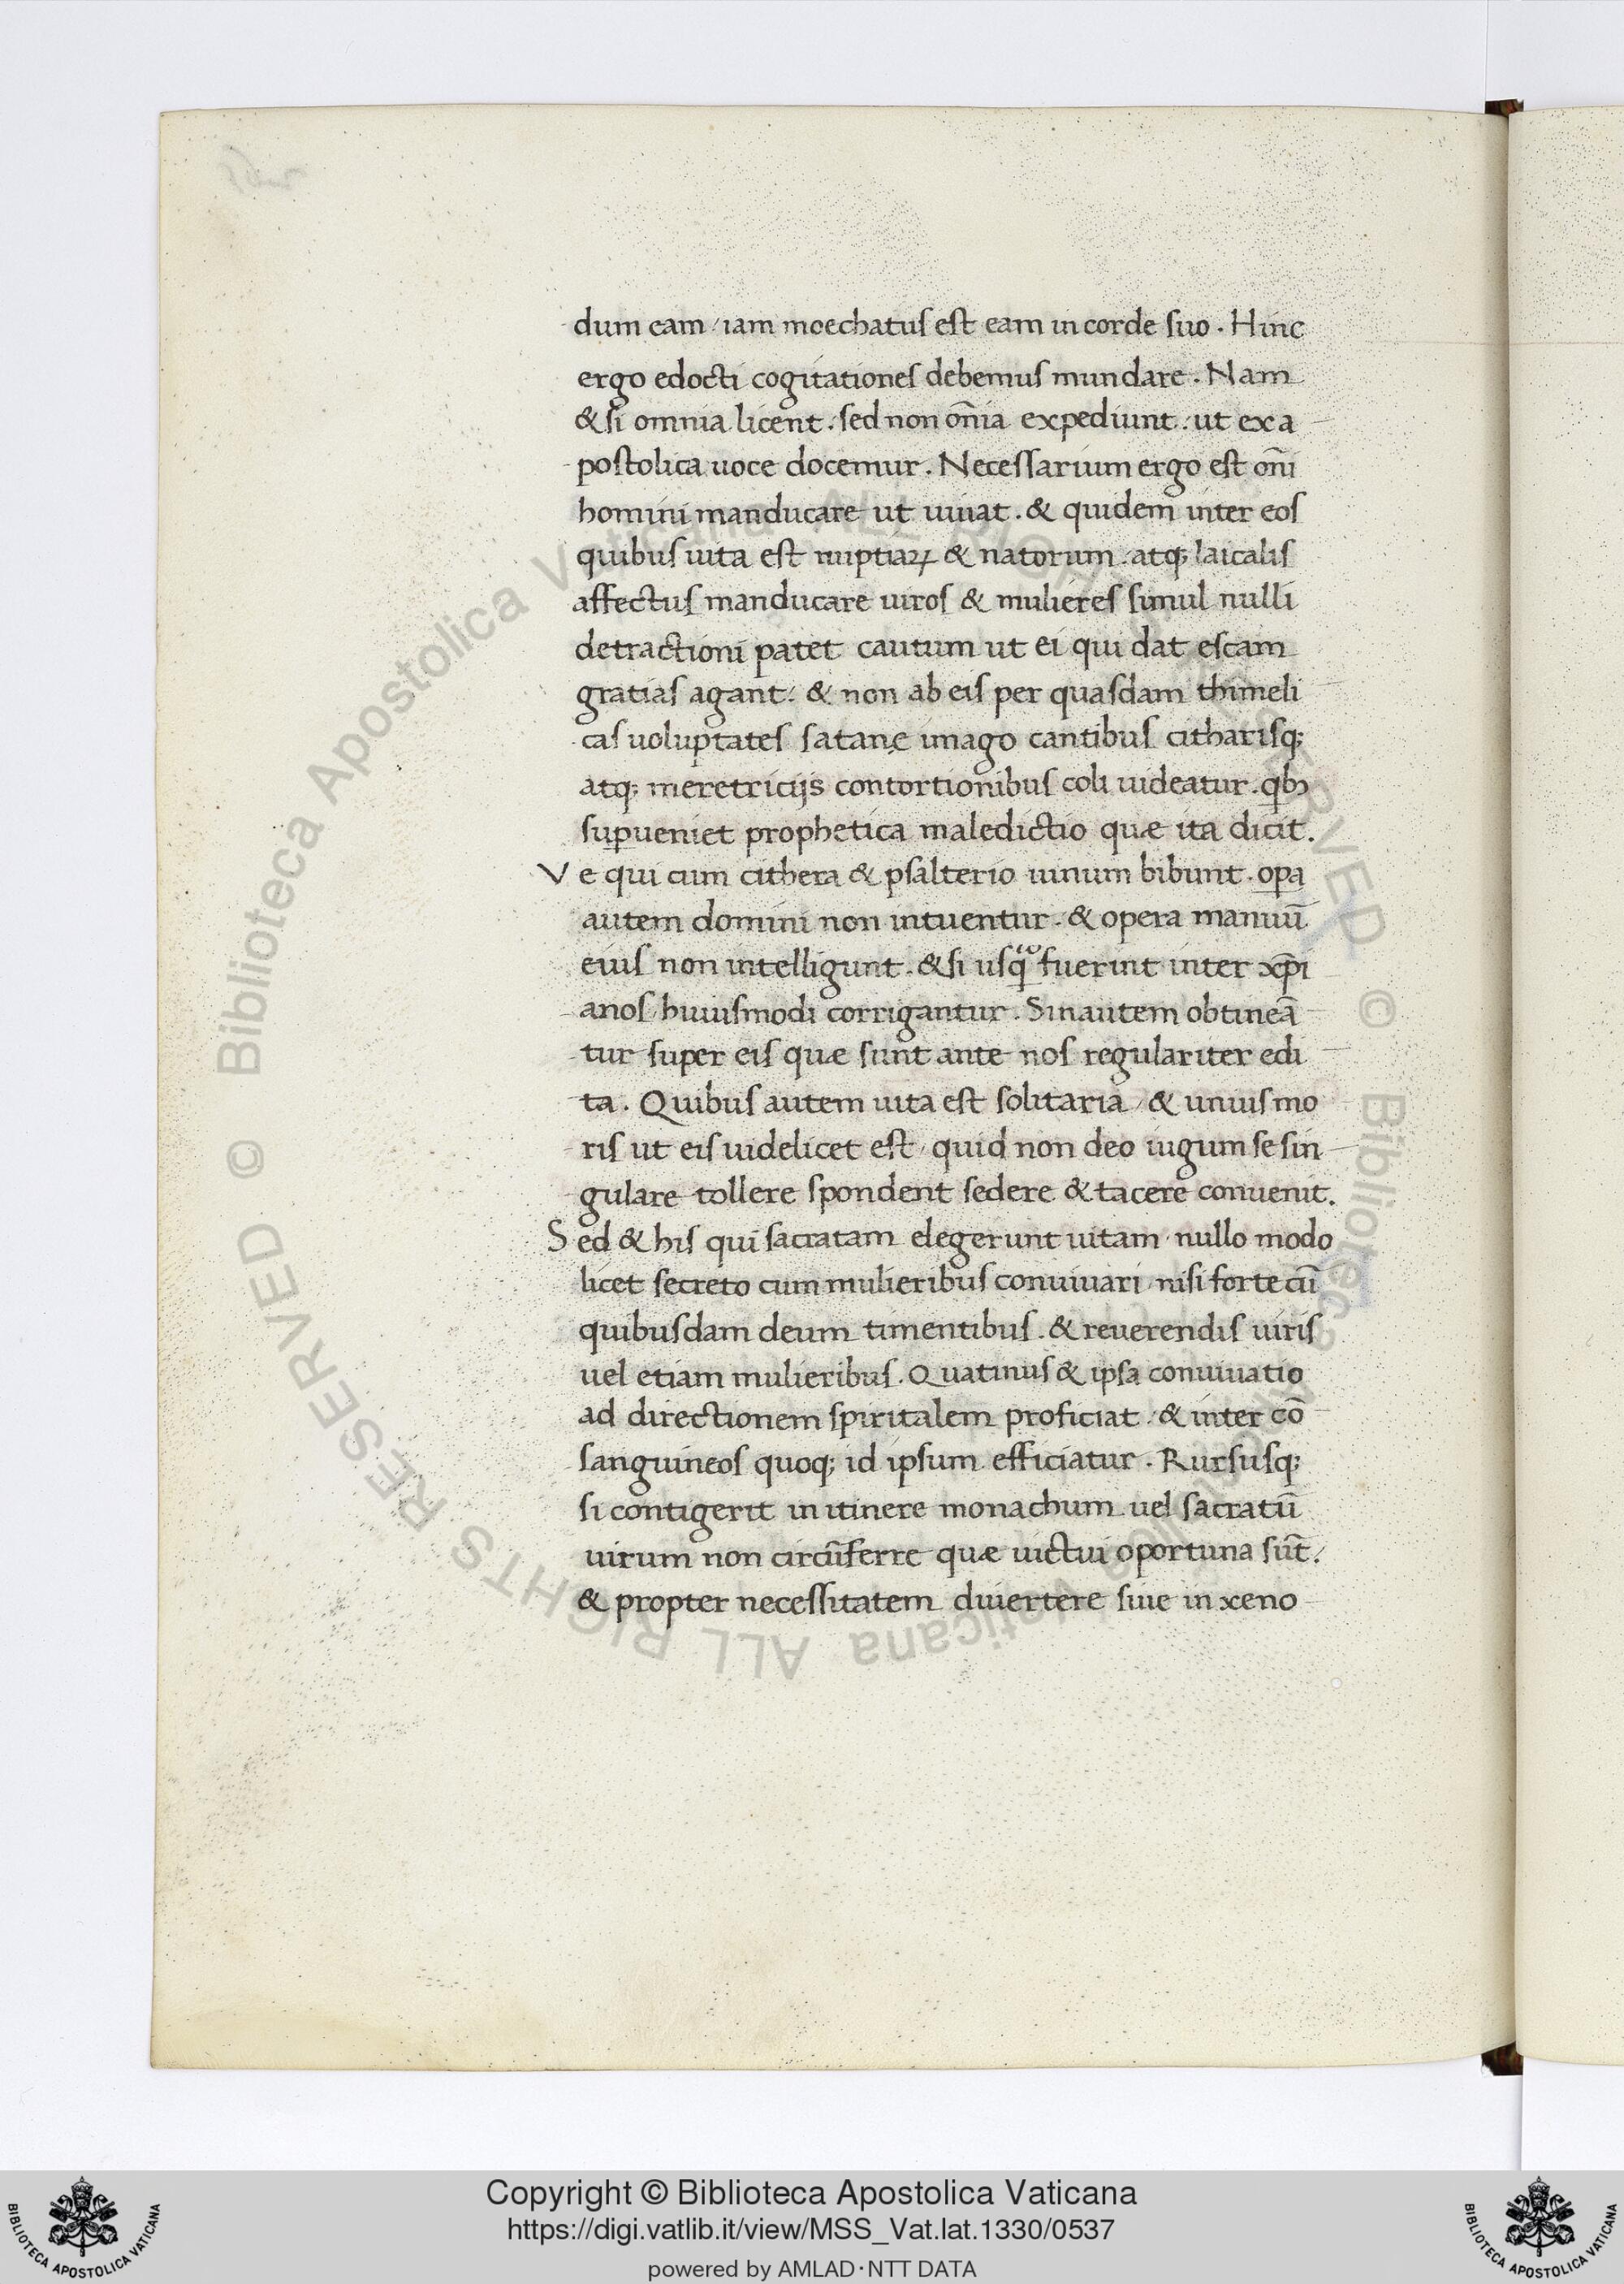 dum eam / iam moechatus est eam in corde suo . Hinc
ergo edocti cogitationes debemus mundare . Nam
& si omnia licent . sed non om̄ia expediunt . ut ex a
postolica uoce docemur . Necessarium ergo est om̄i
homini manducare ut uiuat . & quidem inter eos
quibus uita est nuptiaꝝ & natorum . atq; laicalis
affectus manducare uiros & mulieres simul nulli
detractioni patet cautum ut ei qui dat escam
gratias agant / & non ab eis per quasdam thimeli
cas uoluptates satanę imago cantibus citharisq;
atq; meretricijs contortionibus coli uideatur . qbꝫ
suꝑueniet prophetica maledictio quæ ita dicit .
Ve qui cum cithera & psalterio uinum bibunt . oꝑa
autem domini non intuentur . & opera manuū
eius non intelligunt . & si usqͣ̃ fuerint inter xp̄i
anos huiusmodi corrigantur . Sin autem obtineā
tur super eis quæ sunt ante nos regulariter edi
ta . Quibus autem uita est solitaria / & unius mo
ris ut eis uidelicet est / quid non deo iugum se sin
gulare tollere spondent sedere & tacere conuenit .
Sed & his qui sacratam elegerunt uitam nullo modo
licet secreto cum mulieribus conuiuari / nisi forte cū
quibusdam deum timentibus . & reuerendis uiris
uel etiam mulieribus . Quatinus & ipsa conuiuatio
ad directionem spiritalem proficiat . & inter cō
sanguineos quoq; id ipsum efficiatur . Rursusq;
si contigerit in itinere monachum uel sacratū
uirum non circūferre quæ uictui oportuna sūt .
& propter necessitatem diuertere siue in xeno
Copyright © Biblioteca Apostolica Vaticana
https://digi.vatlib.it/view/MSS_Vat.lat.1330/0537
powered by AMLAD·NTT DATA
BIBLIOTECA APOSTOLICA VATICANA
BIBLIOTECA APOSTOLICA VATICANA
© Biblioteca Apostolica Vaticana ALL RIGHTS RESERVED © Biblioteca Apostolica Vaticana ALL RIGHTS RESERVED